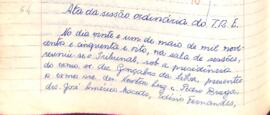 Ata da sessão ordinária do T.R.E.
No dia vinte e um de maio de mil nove-
cento e cinquenta e oito, na sala de sessões,
reuniu-se o Tribunal, sob a presidência
do exmo. sr. des. Gonçalves da Silva, presentes
o exmo. srs. des. Santos e Pedro Braga,
des. José Américo Macedo, Fernandes,